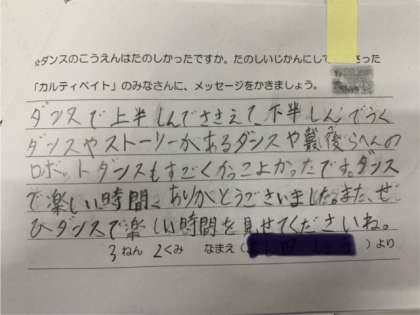 ☆ダンスのこうえんはたのしかったですか。たのしいじかんにして
さった
「カルティベイト」のみなさんに、メッセージをかきましょう。
ダンスで上半しんでささえて、下半しんでうく
ダンスやストーリーがあるダンスや最後らへんの
ロボットダンスもすごくかっこよかったです。ダンス
で楽しい時間を ありがとうございました。また、ぜ
ひダンスで楽しい時間を見せてくださいね。
3ねん 2くみ なまえ( )より